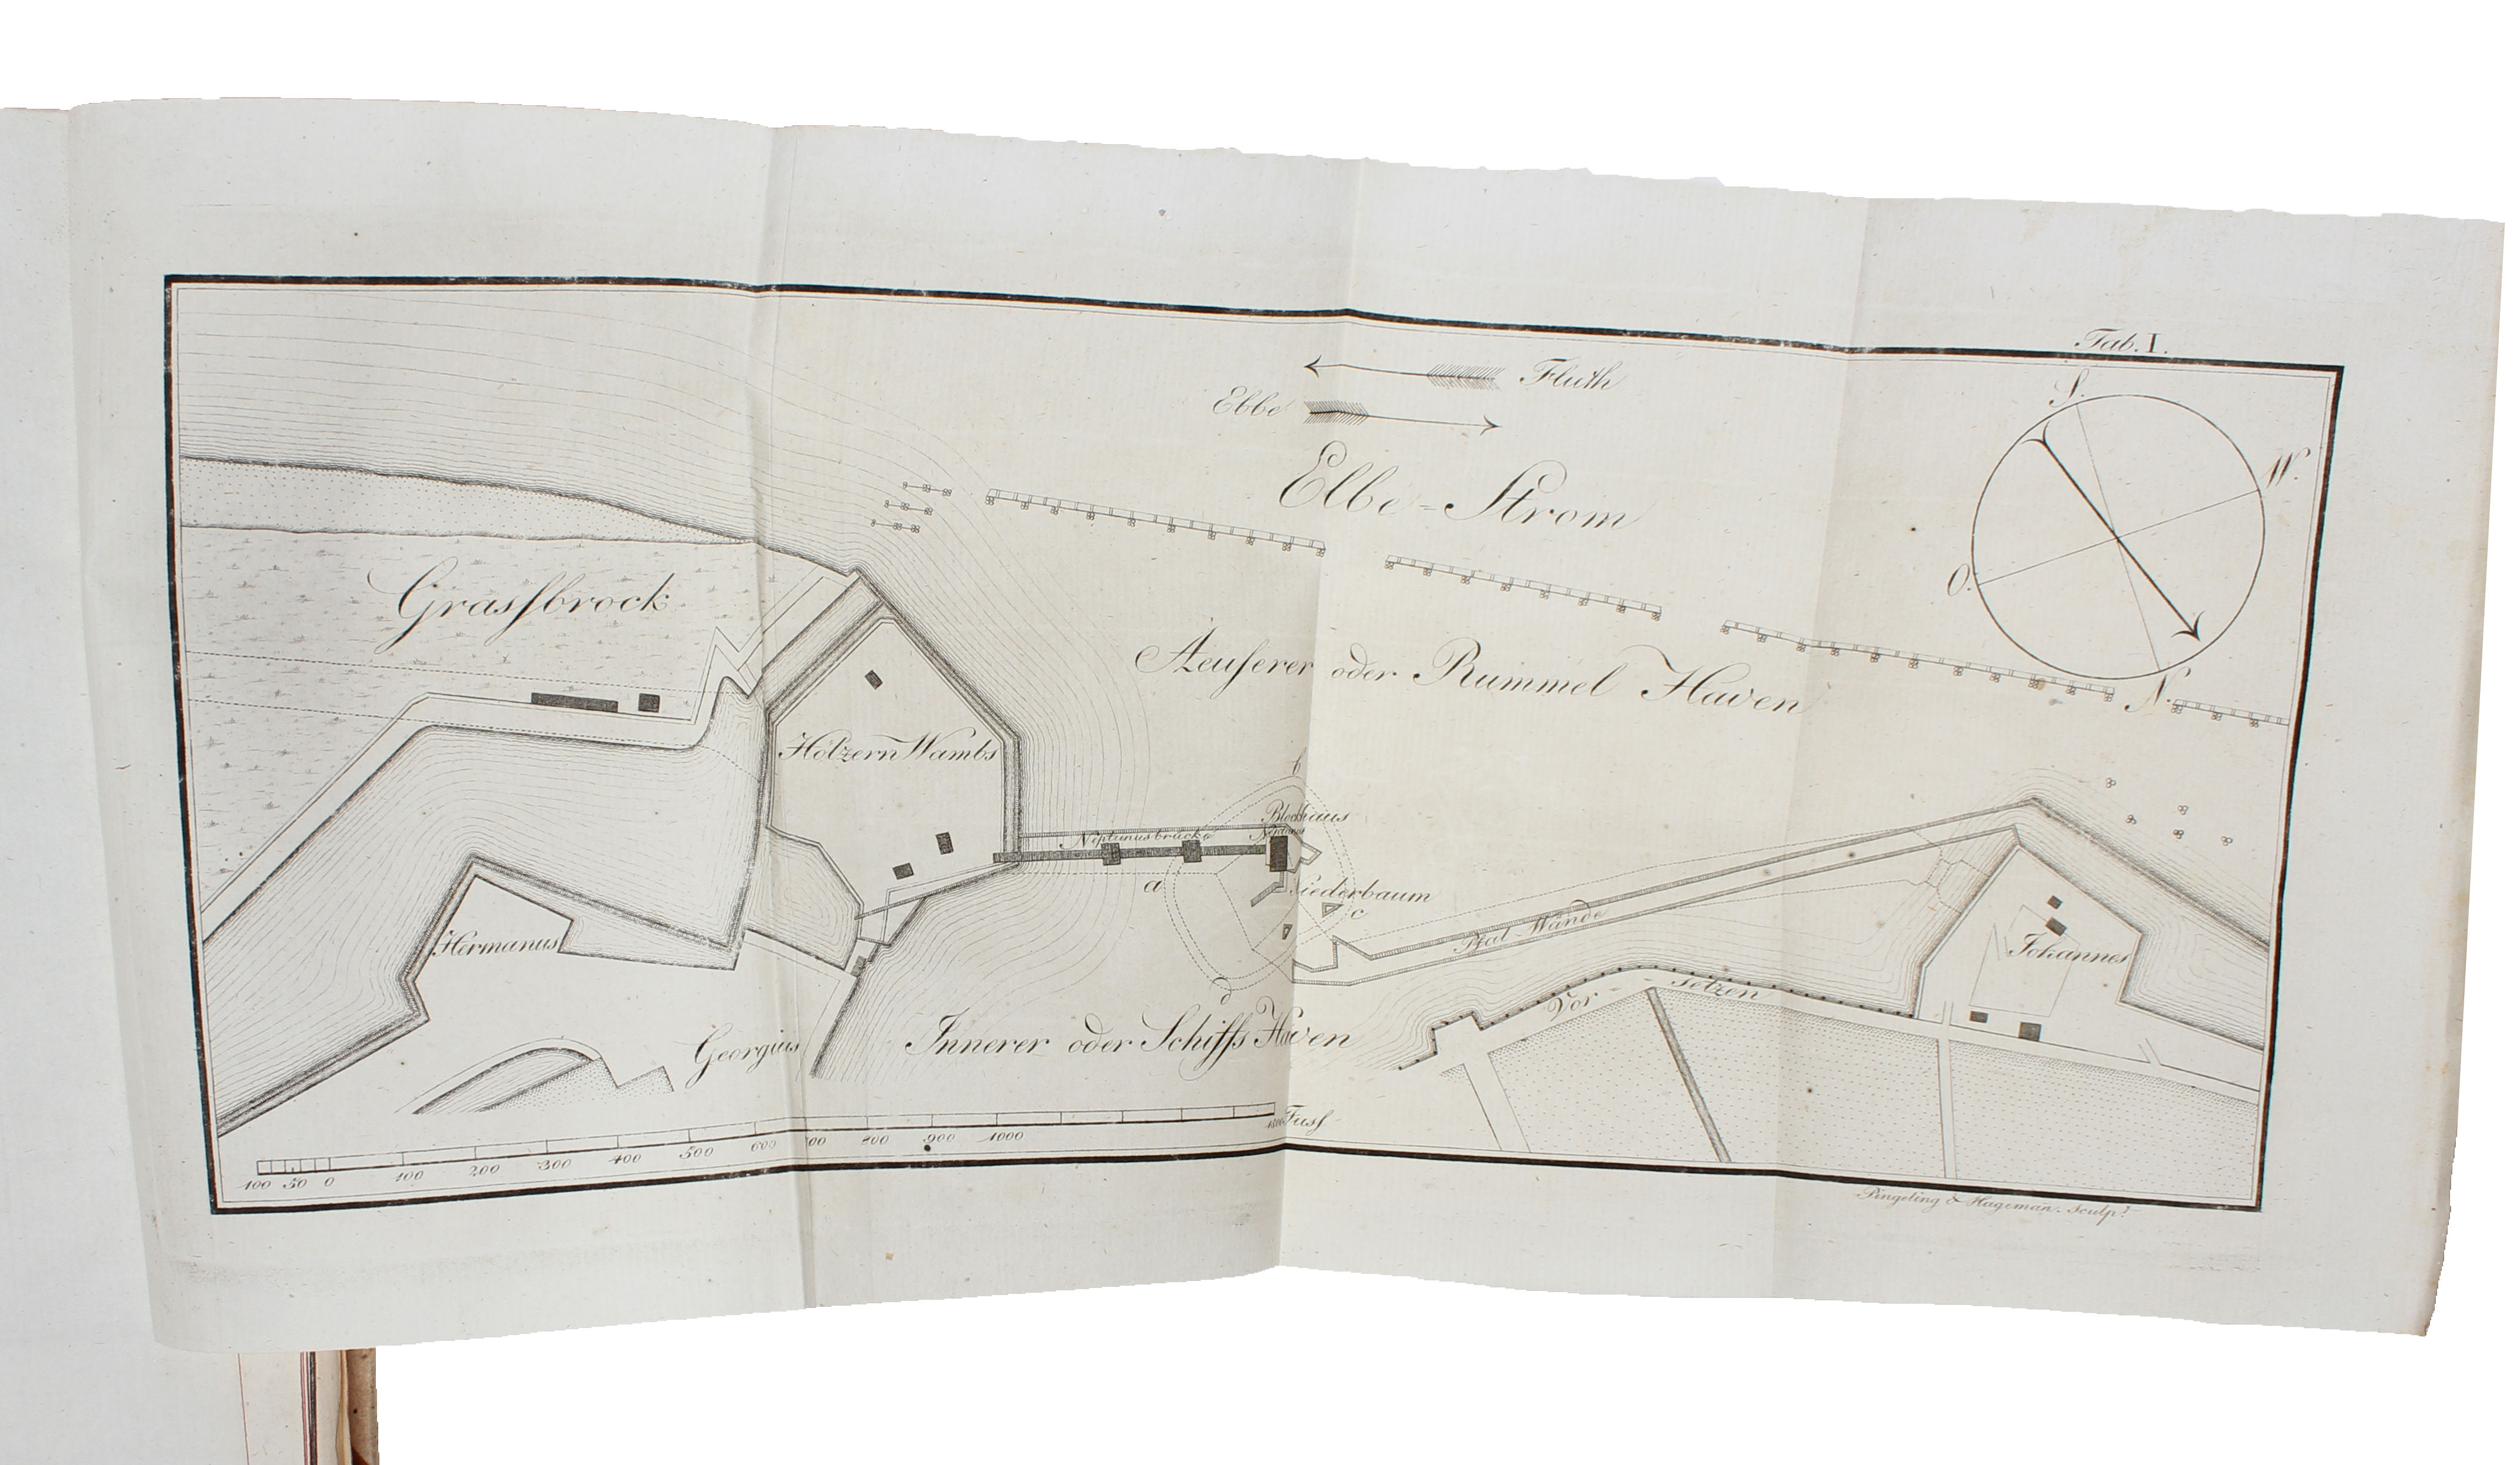 Tab. I.
S.
W.
O.
N.
Fluth
Ebbe
Elbe-Strom
Grassbrock
Aeuserer oder Rummel Haven
Hölzern Wambs
b
Blockhaus
Neptunus
Neptunusbrücke
a
Niederbaum
c
Pfal Wände
Johannes
Hermanus
d
Vor-setzen
Georgius
Innerer oder Schiffs Haven
100 50 0 100 200 300 400 500 600 700 800 900 1000 Fuss
Pingeling & Hageman. Sculpt